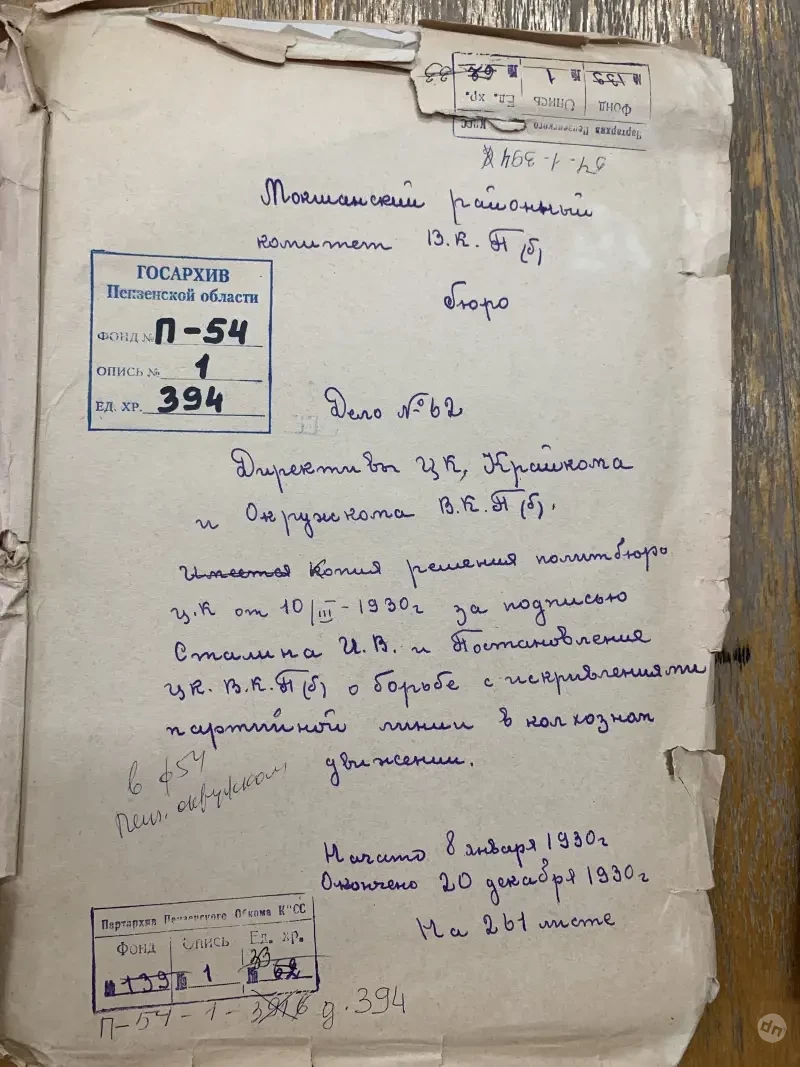 Партархив Пензенского КПСС
Фонд Опись Ед. хр.
№ 139 № 1 № 62 33
54-1-394
Мокшанский районный
комитет В.К.П(б)
бюро
ГОСАРХИВ
Пензенской области
ФОНД № П-54
ОПИСЬ № 1
ЕД. ХР. 394
Дело № 62
Директивы ЦК, Крайкома
и Окружкома В.К.П(б).
Имеется Копия решения политбюро
ц.к от 10/III-1930г за подписью
Сталина И.В. и Постановления
цк. В.К.П(б) о борьбе с искривлениями
партийной линии в колхозном
движении.
в ф54
Пенз. окружком
Начато 8 января 1930г
Окончено 20 декабря 1930г
На 261 листе
Партархив Пензенского Обкома КПСС
Фонд Опись Ед. хр.
33
№ 139 № 1 № 62
П-54-1-3916 д. 394
dn